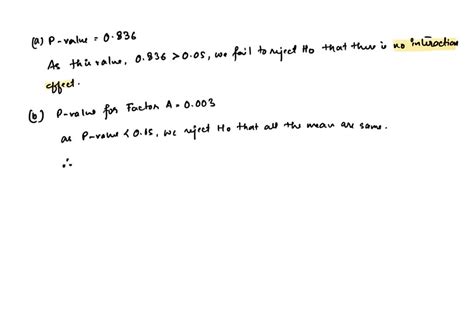 (a) P-value = 0.836
As this value, 0.836 > 0.05, we fail to reject H0 that there is no interaction
effect.
(b) P-value for Factor A = 0.003
as P-value < 0.15, we reject H0 that all the mean are same.
∴